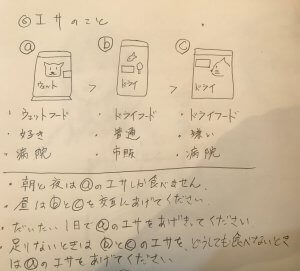 ⑥エサのこと
ⓐ ⓑ ⓒ
ウェット > ドライ > ドライ
・ウェットフード ・ドライフード ・ドライフード
・好き ・普通 ・嫌い
・病院 ・市販 ・病院
・朝と夜はⓐのエサしか食べません。
・昼はⓑとⓒを交互にあげてください。
・だいたい1日でⓐのエサをあげきってください
・足りないときはⓑとⓒのエサを、どうしても食べないとき
はⓐのエサをあげてください。